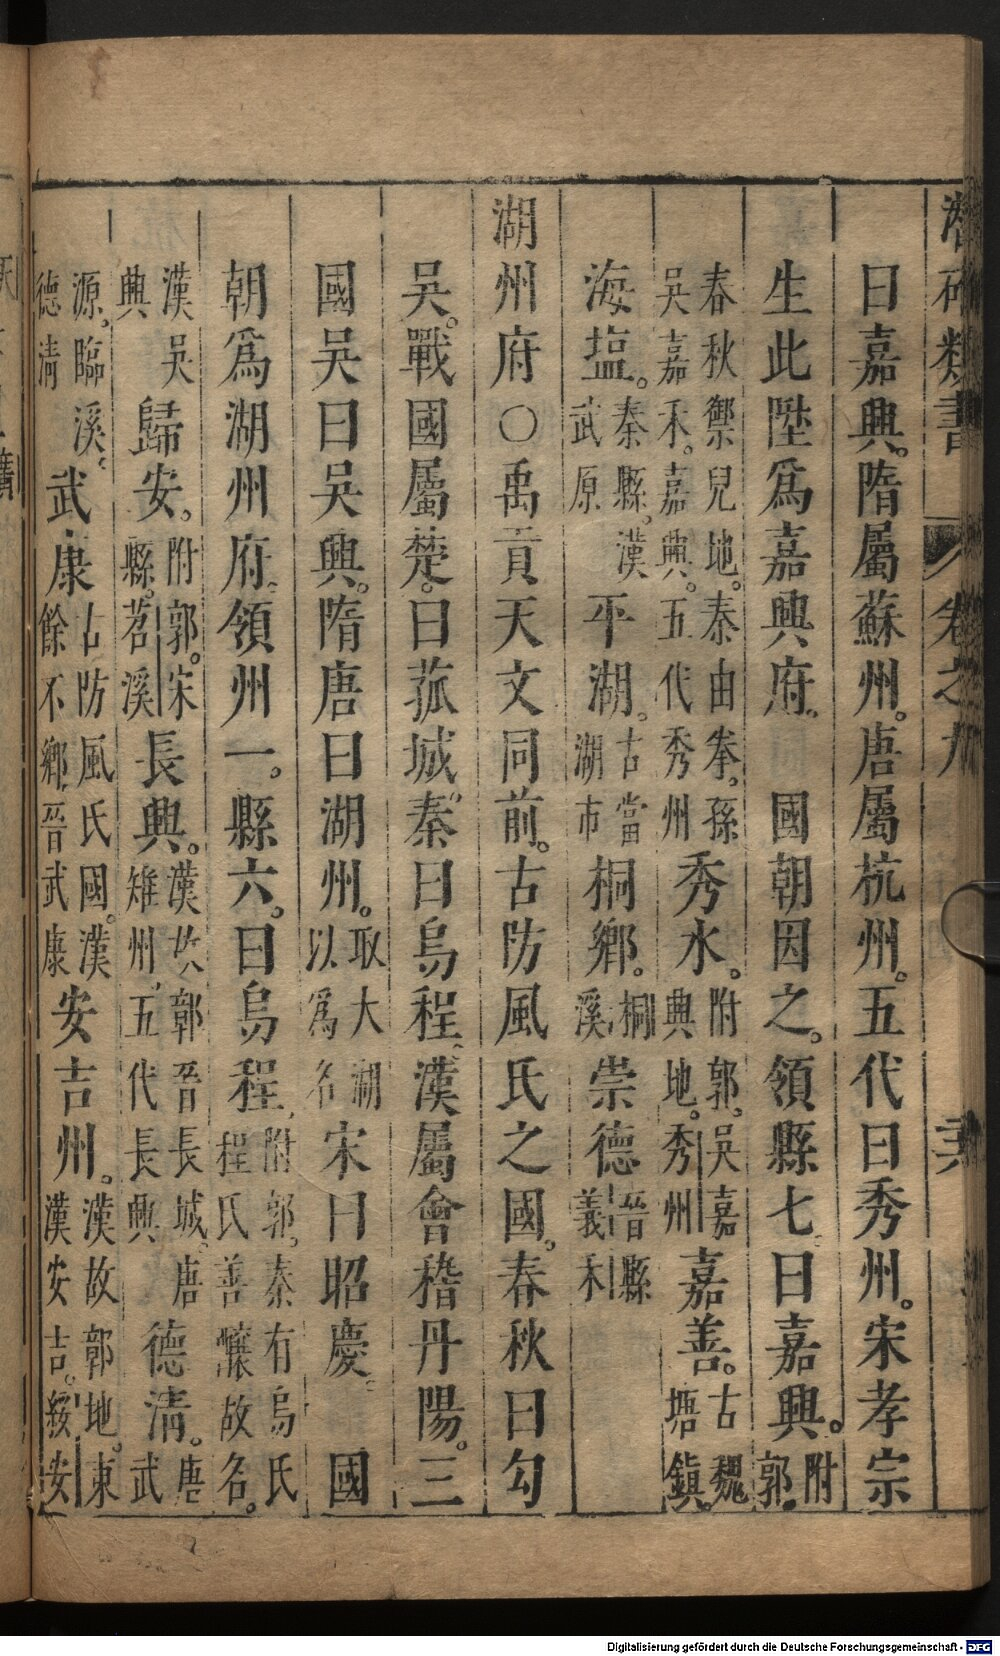 潛确類書 卷之九
曰嘉興。隋屬蘇州。唐屬杭州。五代曰秀州。宋孝宗
生此陞爲嘉興府。 國朝因之。領縣七曰嘉興。附郭。
春秋禦兒地。秦由拳。孫吳嘉禾。嘉興。五代秀州秀水。附郭。吳嘉興地。秀州嘉善。古魏塘鎮。
海塩。秦縣。漢武原平湖。古當湖市桐鄉。桐溪崇德晉縣義禾
湖州府○禹貢天文同前。古防風氏之國。春秋曰勾
吳。戰國屬楚。曰菰城。秦曰烏程。漢屬會稽丹陽。三
國吳曰吳興。隋唐曰湖州。取大湖以爲名宋曰昭慶。 國
朝爲湖州府。領州一。縣六。曰烏程。附郭。秦有烏氏程氏善釀故名。
漢吳興歸安。附郭。宋縣。苕溪長興。漢故郭晉長城。唐雉州。五代長興德清。唐武
源。臨溪。德清武康古防風氏國。漢餘不鄉。晉武康安吉州。漢故郭地。東漢安吉。綏安
Digitalisierung gefördert durch die Deutsche Forschungsgemeinschaft - DFG